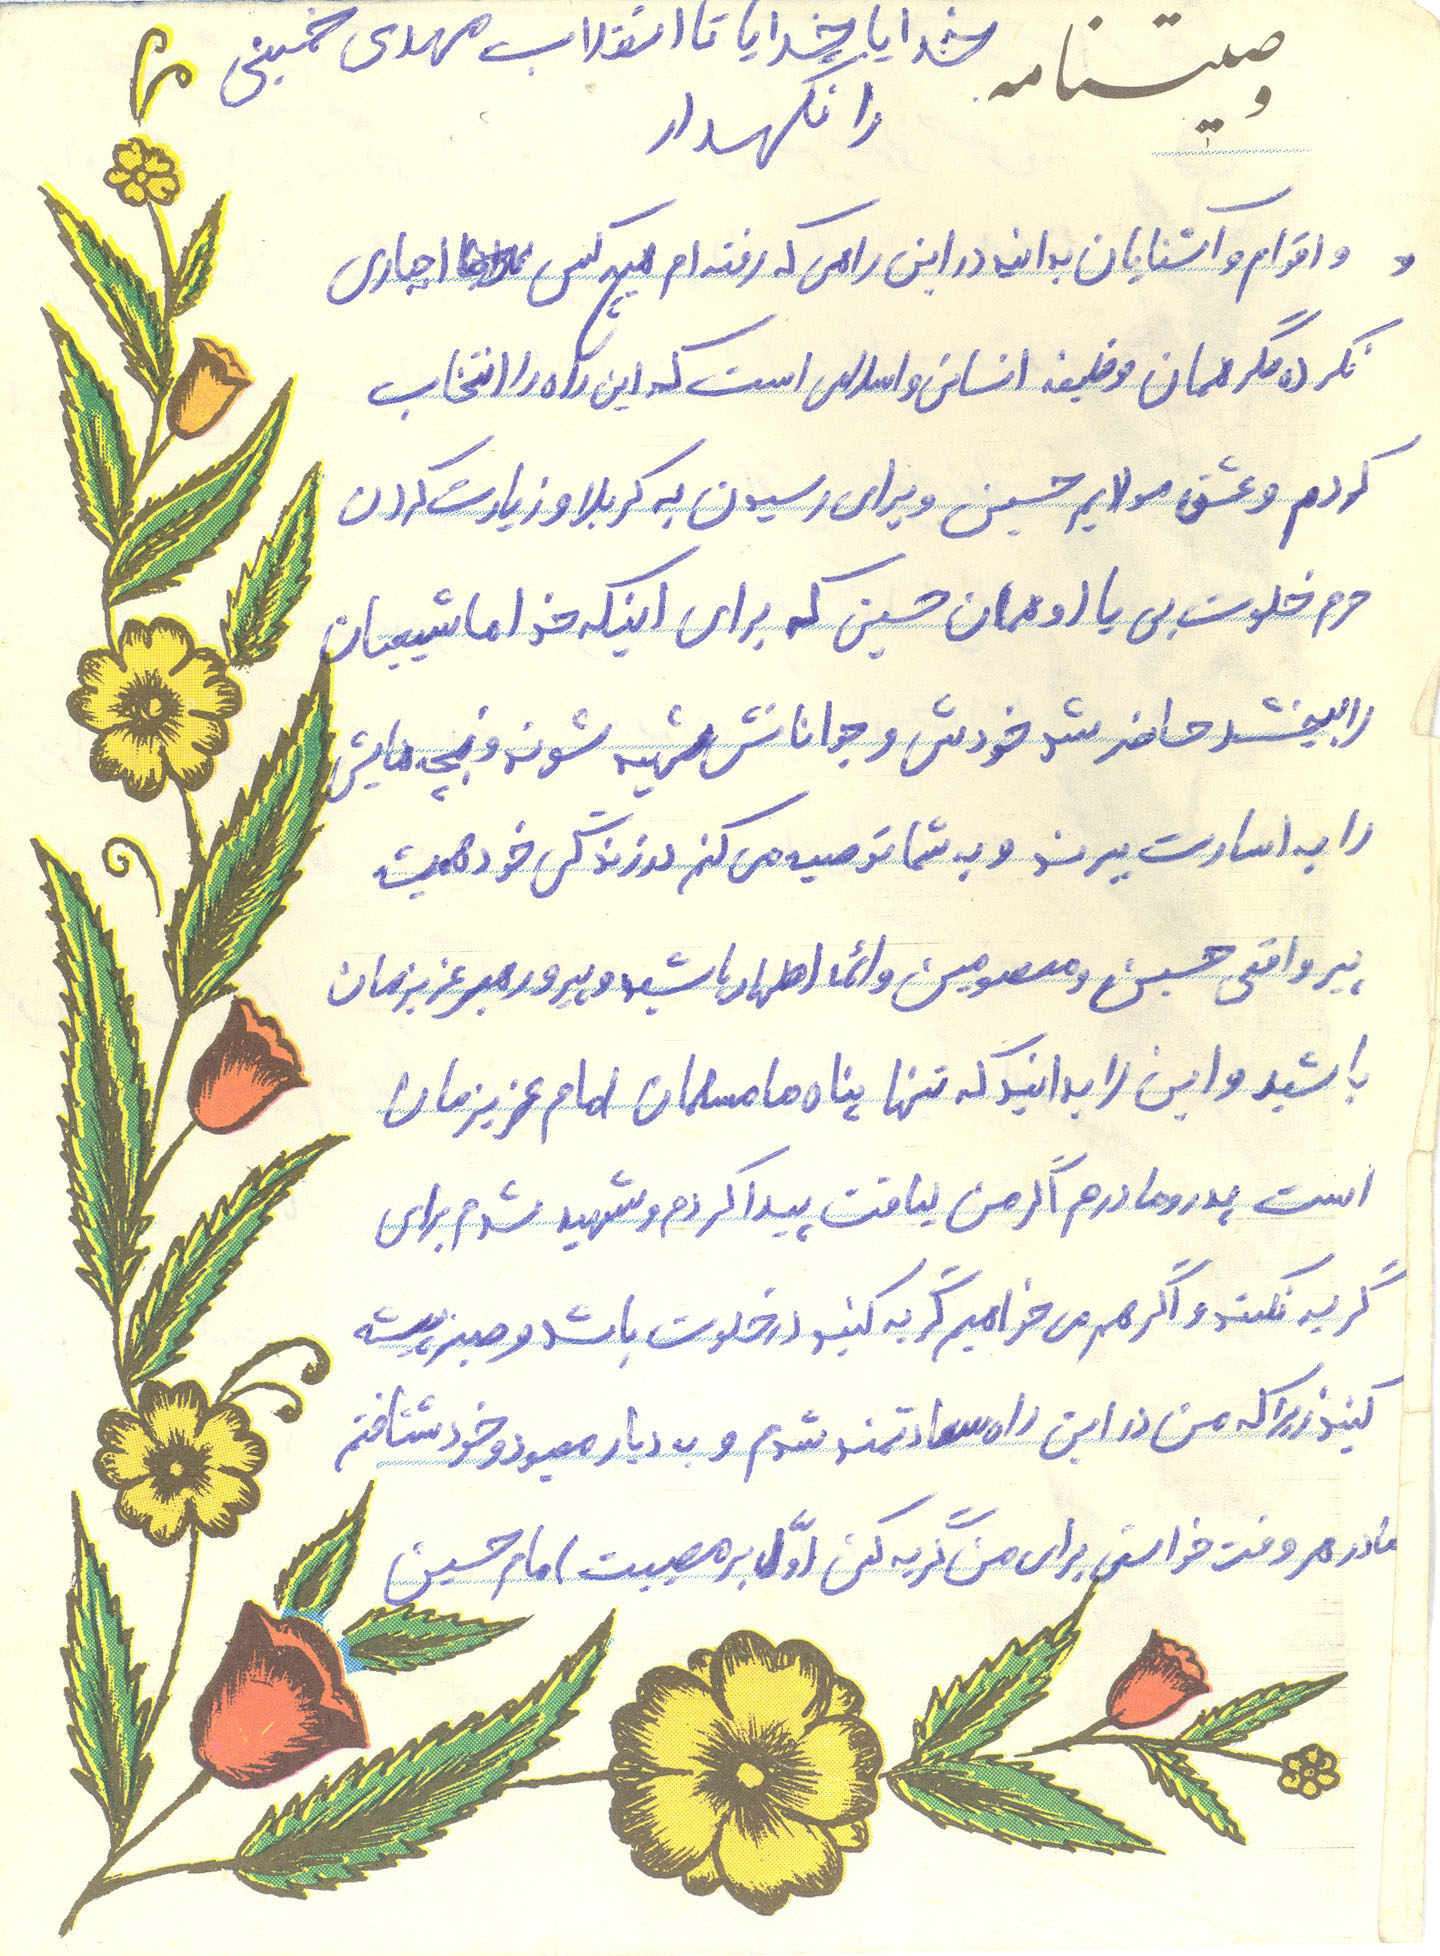 وصیتنامه
خدایا خدایا تا انقلاب مهدی خمینی
را نگهدار
و اقوام و آشنایان بدانید در این راهی که رفته ام هیچ کس اجباری
نکرده مگر همان وظیفه انسانی و اسلامی است که این راه را انتخاب
کردم و عشق مولایم حسین و برای رسیدن به کربلا و زیارت کردن
حرم خلوت بی یا او همان حسین که برای اینکه خدا ما شیعیان
را ببخشد حاضر شد خودش و جوانانش شهید شوند و بچه هایش
را به اسارت ببرند و به شما توصیه می کنم در زندگی خود همیشه
پیر واقعی حسین و معصومین و ائمه اطهار باشید و پیرو رهبر عزیزمان
باشید و این را بدانید که تنها پناه ما مسلمان امام عزیزمان
است پدر و مادرم اگر من لیاقت پیدا کردم و شهید شدم برای
گریه نکنید و اگر هم می خواهیم گریه کنید در خلوت باشد و صبر پیشه
کنید زیرا که من در این راه سعادتمند شدم و به دیار معبود خود شتافتم
مادر هر وقت خواستی برای من گریه کنی اوّل بر مصیبت امام حسین